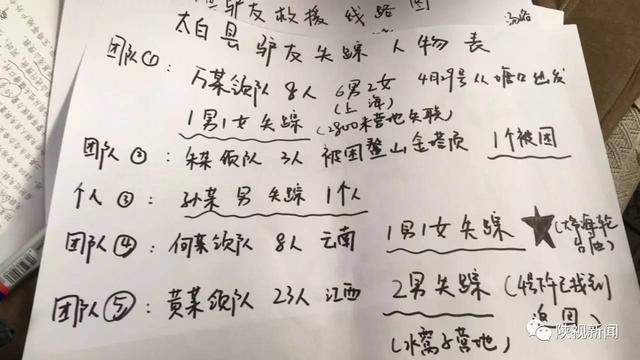 驴友救援线路图
太白县驴友失踪人物表
团队①：万某领队 8人 6男2女 4月29号从塘口出发
(上海)
1男1女失踪 (2800米营地失联)
团队②：朱某领队 3人 被困鳌山金塔顶 1个被困
个人③：孙某 男 失踪 1个人
团队④：何某领队 8人 云南 1男1女失踪 ★(大海乾
团队⑤：黄某领队 23人 江西 2男失踪 (4号下午已找到
返回)
(水窝子营地)
陕视新闻